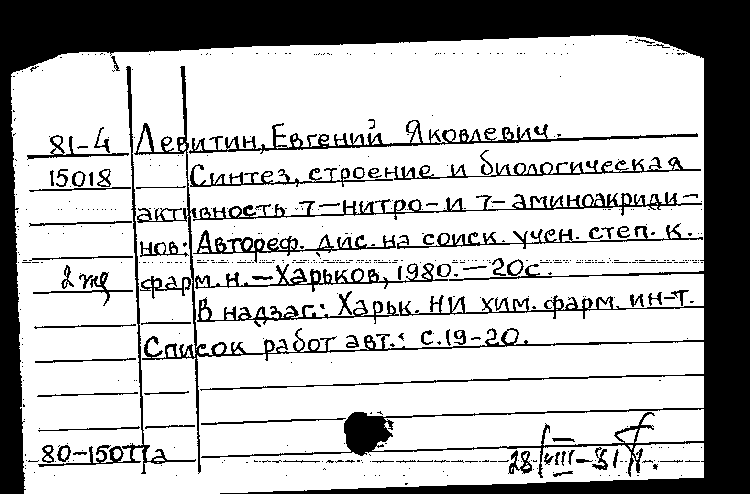 81-4 Левитин, Евгений Яковлевич.
15018 Синтез, строение и биологическая
активность 7-нитро- и 7-аминоакриди-
нов: Автореф. дис. на соиск. учен. степ. к.
2 фарм. н. — Харьков, 1980. — 20с.
В надзаг.: Харьк. НИ хим. фарм. ин-т.
Список работ авт.: с.19-20.
80-15077а
28/VIII-81